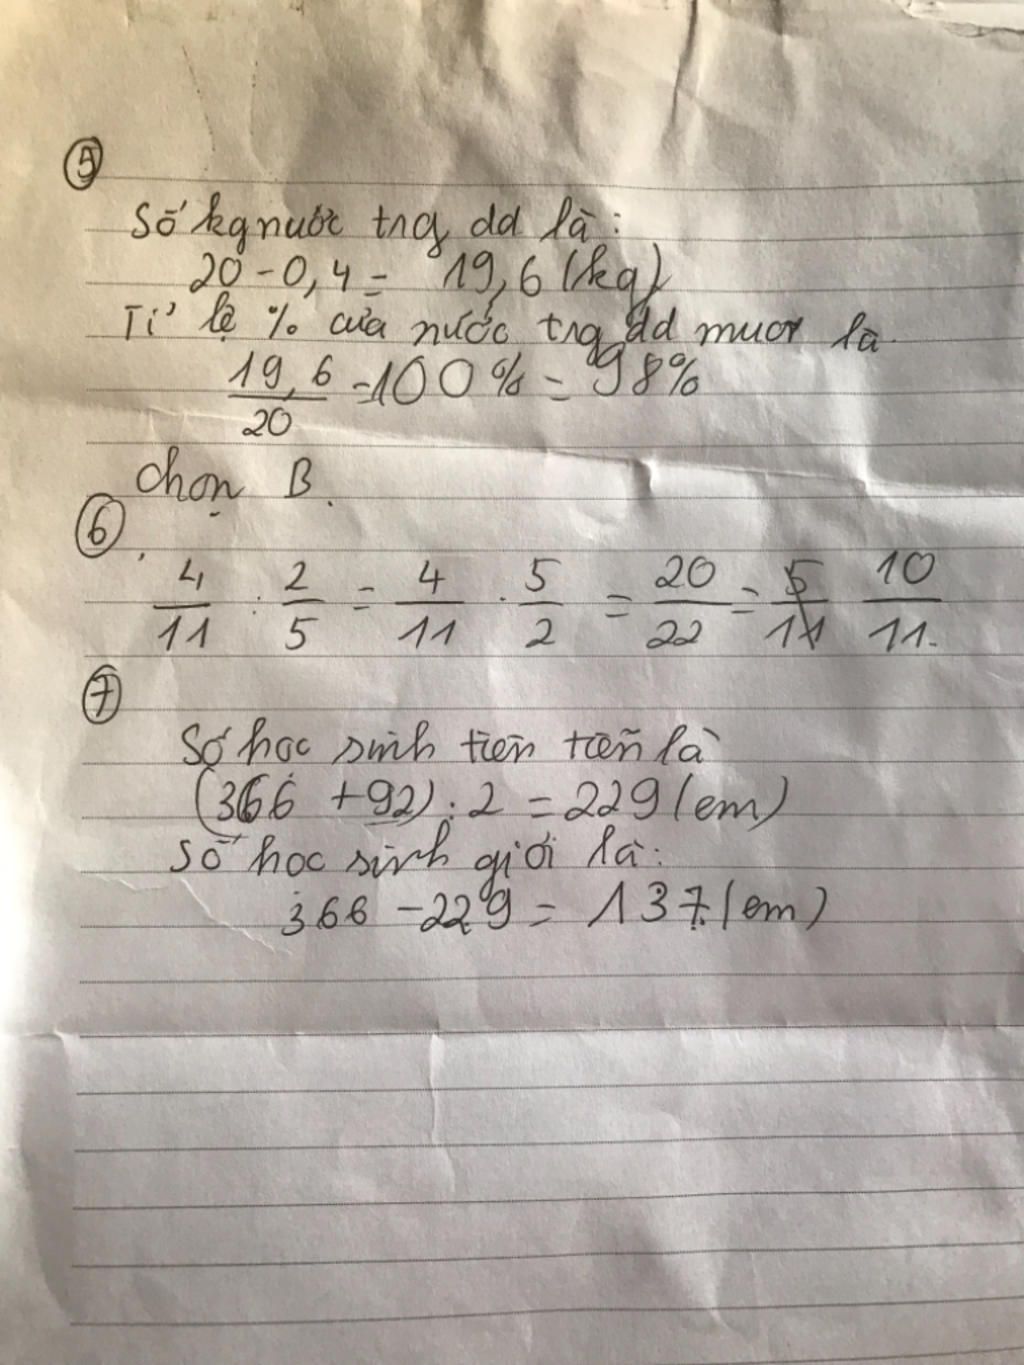 5
Số kg nước trg dd là:
20 - 0,4 = 19,6 (kg)
Tỉ lệ % của nước trg dd muối là.
19,6/20 - 100% = 98%
Chọn B.
6
4/11 : 2/5 = 4/11 . 5/2 = 20/22 = 10/11.
7
Số học sinh tiên tiến là
(366 + 92) : 2 = 229 (em)
Số học sinh giỏi là:
366 - 229 = 137 (em)